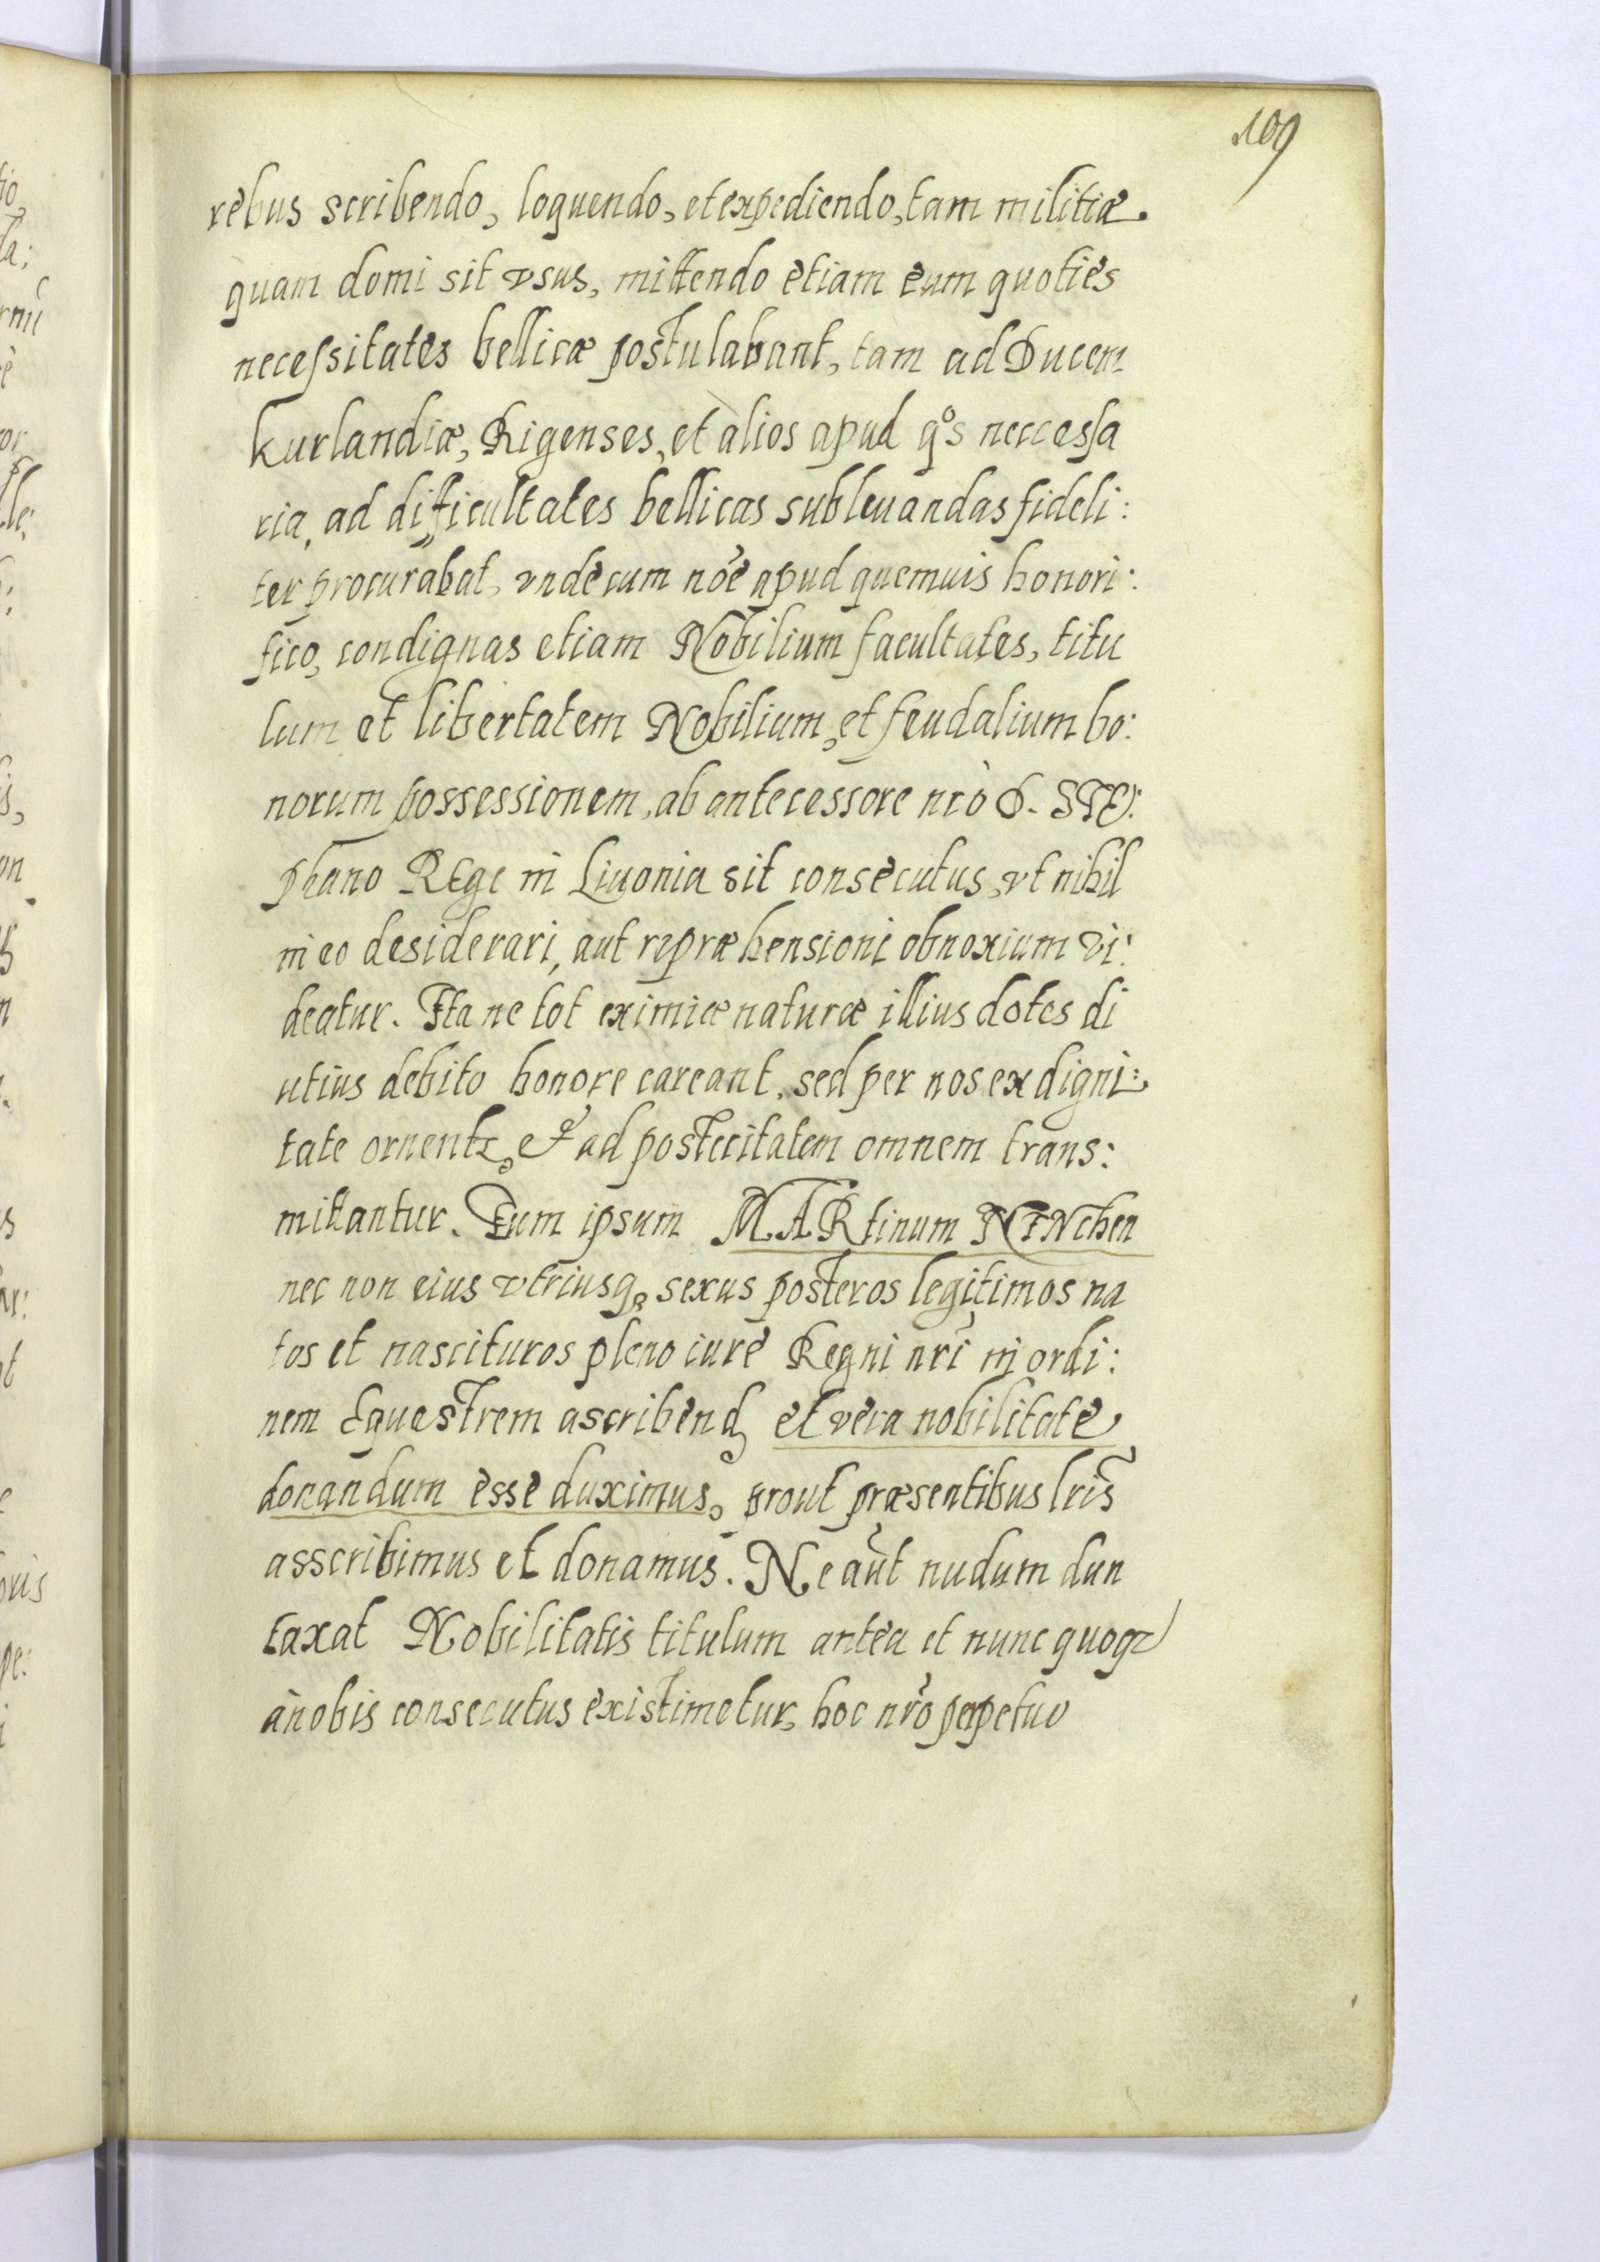 109
rebus scribendo, loquendo, et expediendo, tam militiæ
quam domi sit vsus, mittendo etiam eum quoties
necessitates bellicæ postulabant, tam ad Ducem
Kurlandiæ, Rigenses, et alios apud qos neccessa
ria, ad dificultates bellicas subleuandas fideli:
ter procurabat, vnde cum nōe apud quemuis honori:
fico, condignas etiam Nobilium facultates, titu
lum et libertatem Nobilium, et feudalium bo:
norum possessionem, ab antecessore nrò D. STE:
phano REge in Liuonia sit consecutus, vt nihil
in eo desiderari, aut repræhensioni obnoxium vi:
deatur. Ita ne tot eximiæ naturæ illius dotes di
utius debito honore careant, sed per nos ex digni:
tate ornentr, et ad posteritatem omnem trans:
mittantur. Eum ipsum MARtinum NINchen
nec non eius vtriusq, sexus posteros legitimos na
tos et nascituros pleno iure Regni nrī in ordi:
nem Equestrem ascribend et vera nobilitate
donandum esse duximus, prout præsentibus lrīs
asscribimus et donamus. Ne aūt nudum dun
taxat Nobilitatis titulum antea et nunc quoq
à nobis consecutus existimetur, hoc nr̄o perpetuo